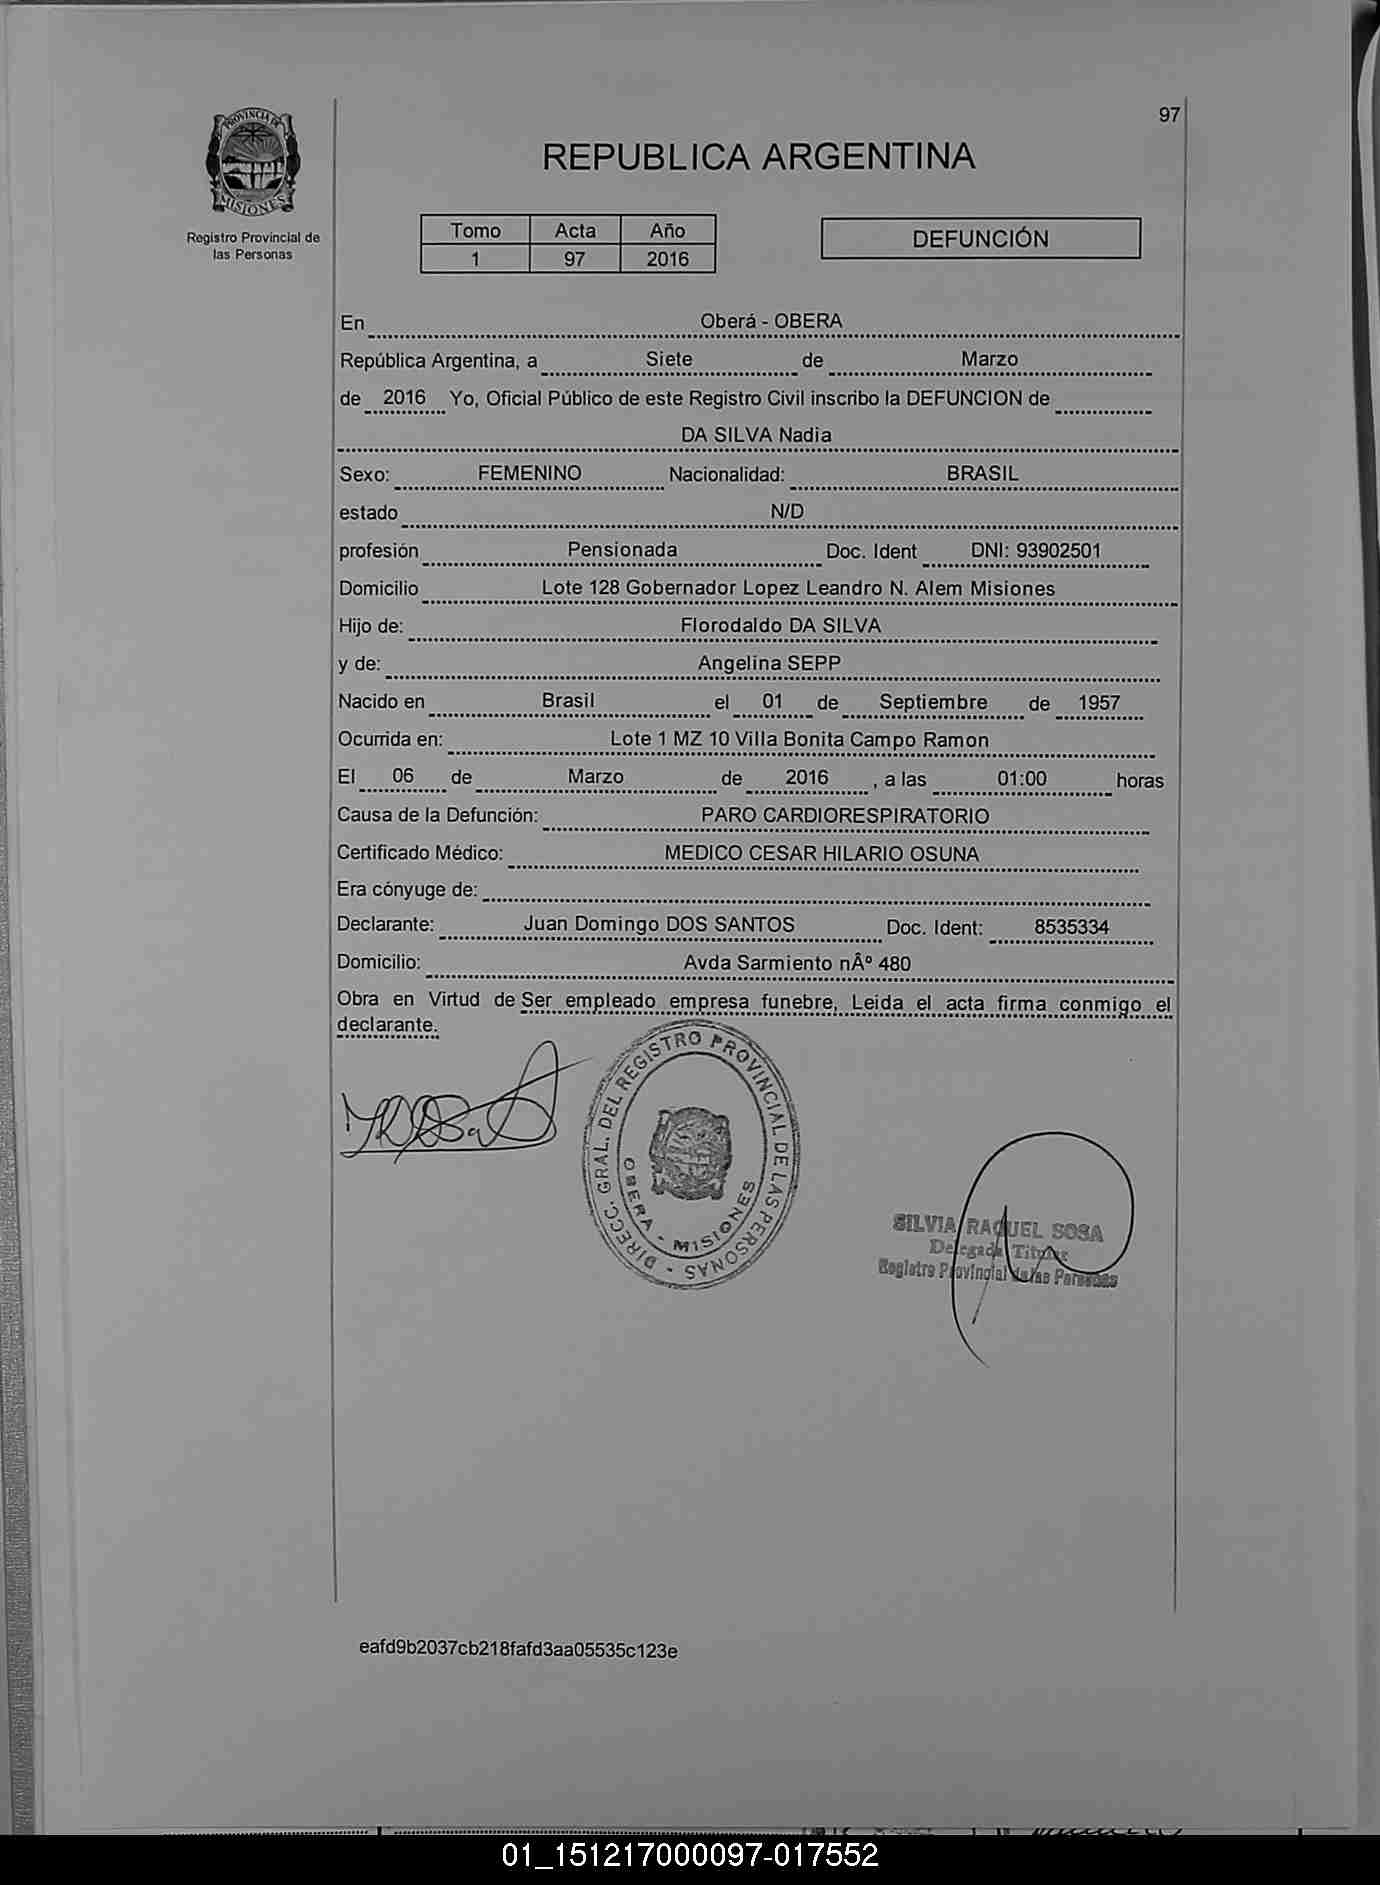 97
PROVINCIA DE
MISIONES
Registro Provincial de
las Personas
REPUBLICA ARGENTINA
Tomo Acta Año
1 97 2016
DEFUNCIÓN
En Oberá - OBERA
República Argentina, a Siete de Marzo
de 2016 Yo, Oficial Público de este Registro Civil inscribo la DEFUNCION de
DA SILVA Nadia
Sexo: FEMENINO Nacionalidad: BRASIL
estado N/D
profesión Pensionada Doc. Ident DNI: 93902501
Domicilio Lote 128 Gobernador Lopez Leandro N. Alem Misiones
Hijo de: Florodaldo DA SILVA
y de: Angelina SEPP
Nacido en Brasil el 01 de Septiembre de 1957
Ocurrida en: Lote 1 MZ 10 Villa Bonita Campo Ramon
El 06 de Marzo de 2016 , a las 01:00 horas
Causa de la Defunción: PARO CARDIORESPIRATORIO
Certificado Médico: MEDICO CESAR HILARIO OSUNA
Era cónyuge de:
Declarante: Juan Domingo DOS SANTOS Doc. Ident: 8535334
Domicilio: Avda Sarmiento nÂº 480
Obra en Virtud de Ser empleado empresa funebre, Leida el acta firma conmigo el
declarante.
DIRECC. GRAL. DEL REGISTRO PROVINCIAL DE LAS PERSONAS -
OBERA - MISIONES
SILVIA RAQUEL SOSA
Delegada Titular
Registro Provincial de las Personas
eafd9b2037cb218fafd3aa05535c123e
01_151217000097-017552